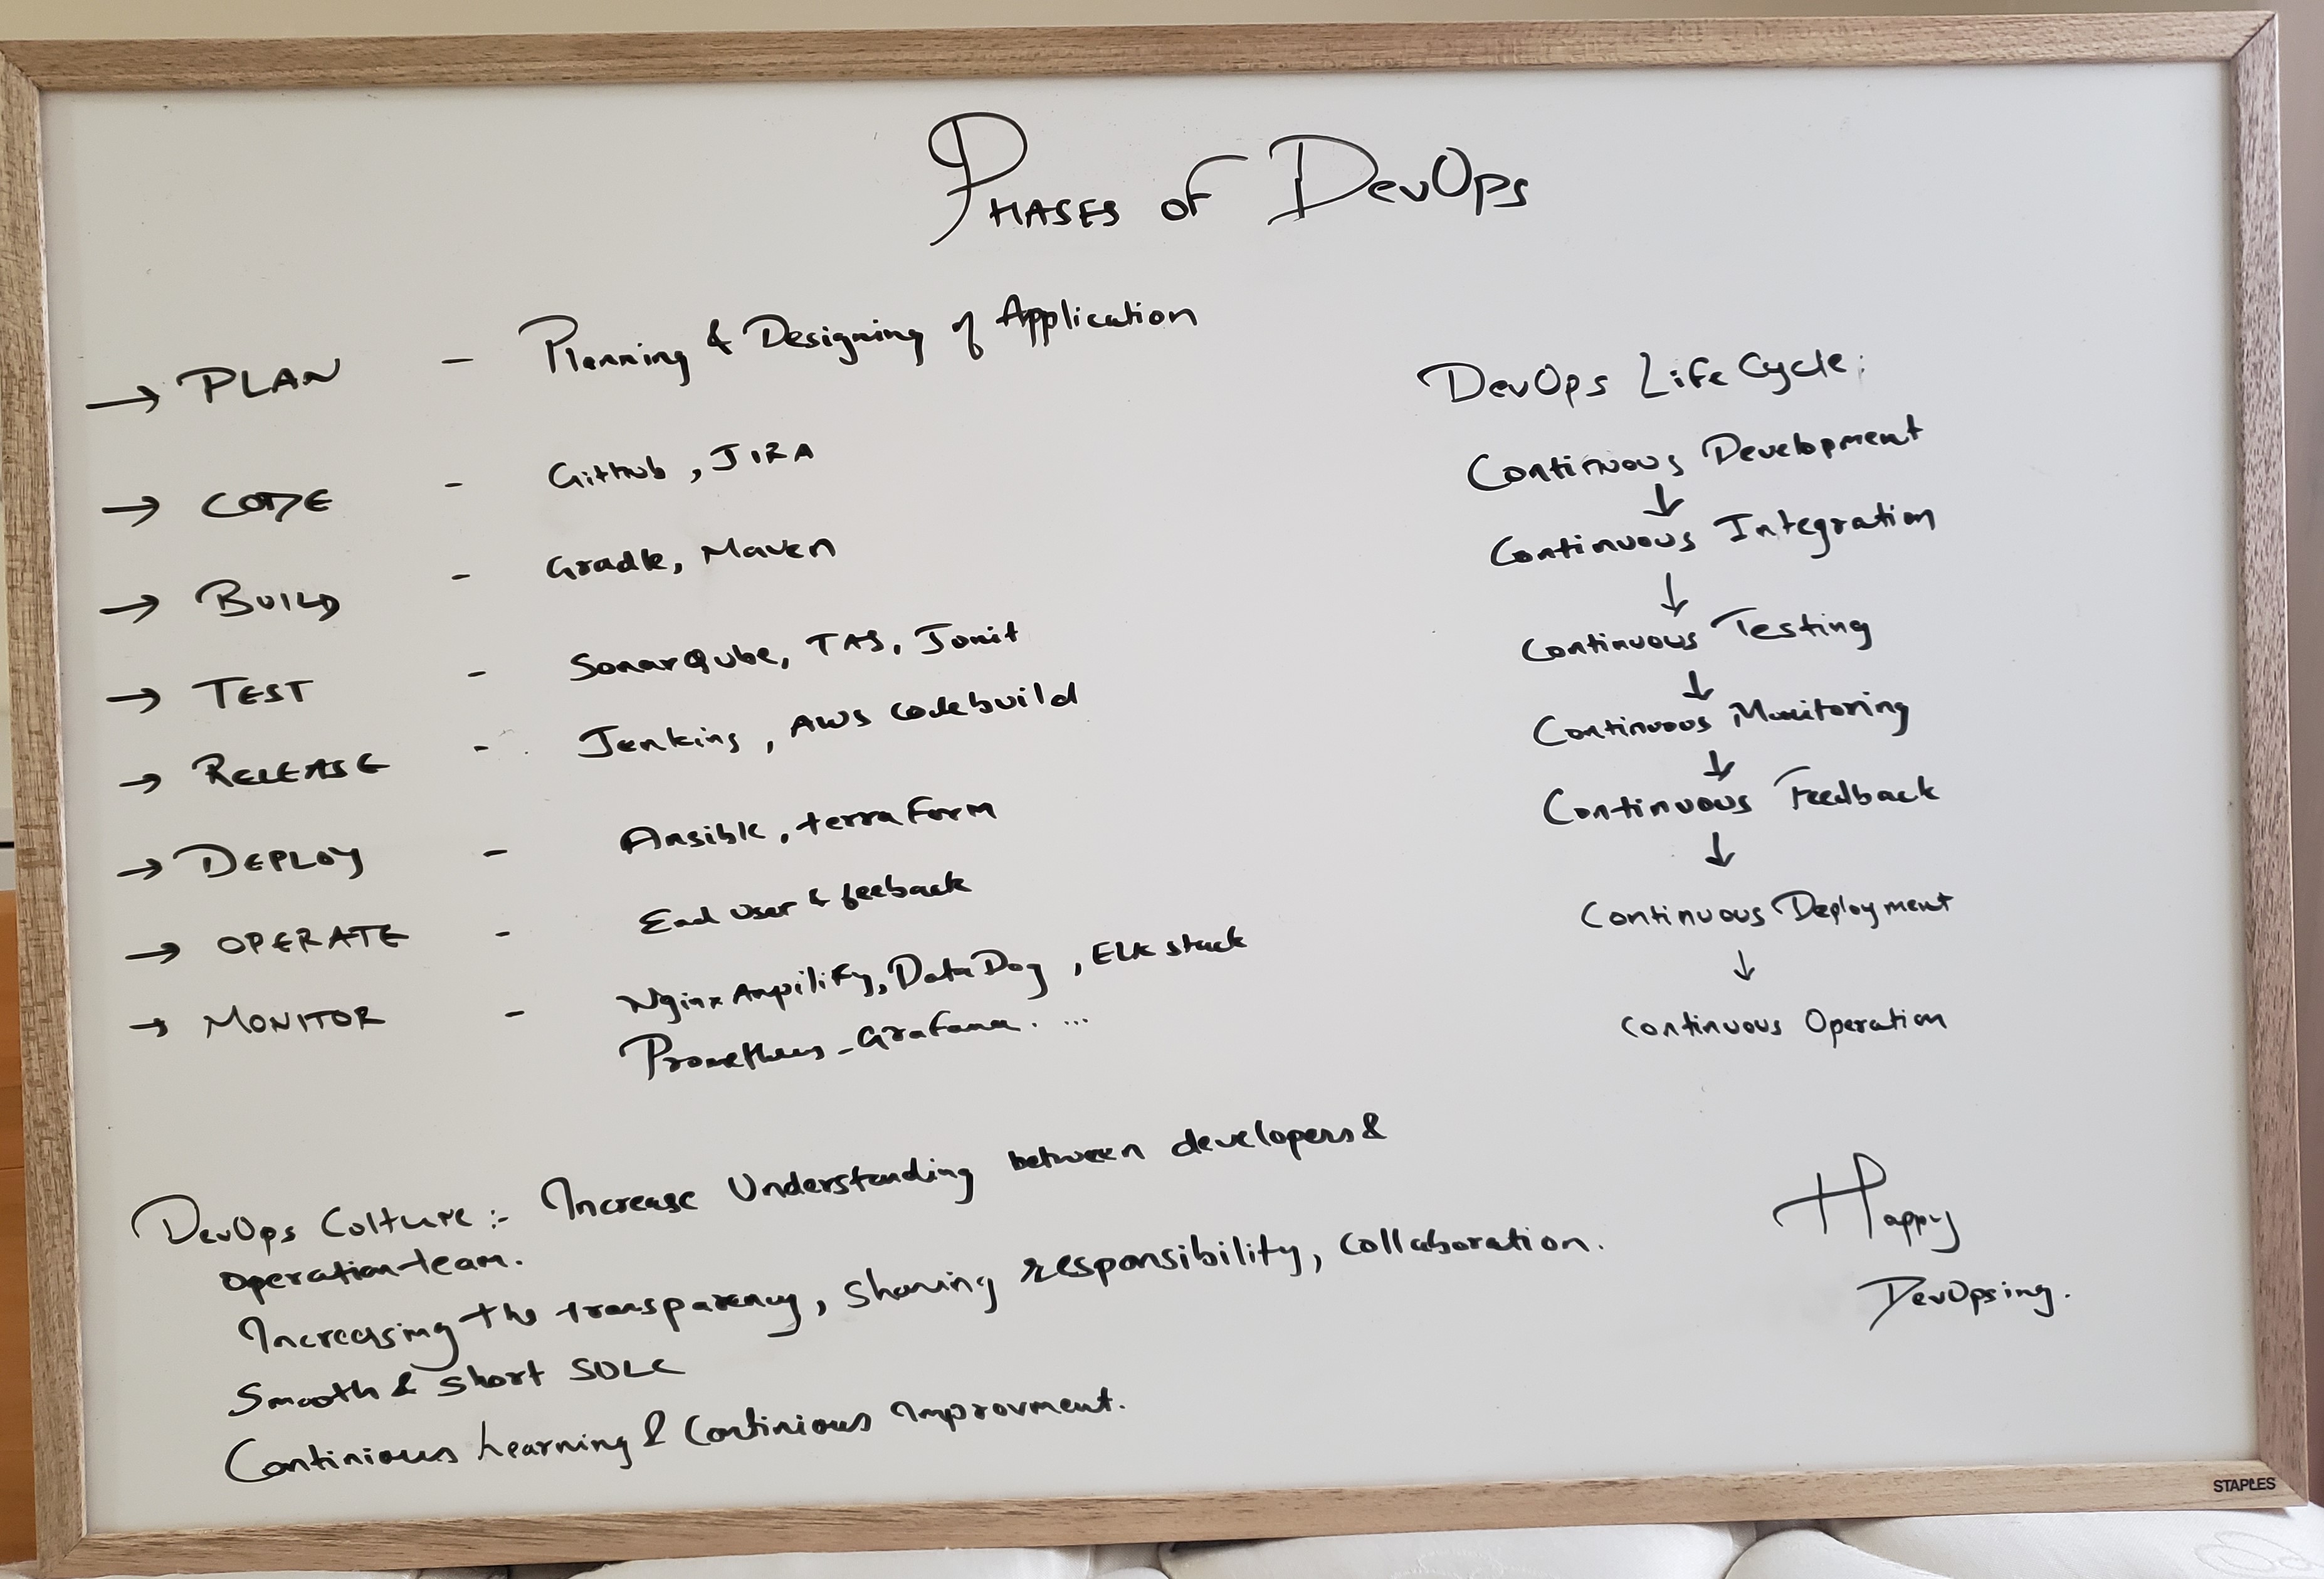 PHASES OF DevOps
→ PLAN - Planning & Designing of Application
→ CODE - Github, JIRA
→ BUILD - Gradle, Maven
→ TEST - SonarQube, TAS, Junit
→ RELEASE - Jenkins, AWS Codebuild
→ DEPLOY - Ansible, terraform
→ OPERATE - End User & feeback
→ MONITOR - Nginx Ampilify, DataDog, ELK stack
Prometheus - Grafana. ...
DevOps Life Cycle:
Continuous Development
↓
Continuous Integration
↓
Continuous Testing
↓
Continuous Monitoring
↓
Continuous Feedback
↓
Continuous Deployment
↓
Continuous Operation
DevOps Culture :- Increase Understanding between developers &
operation team.
Increasing the transparency, sharing responsibility, collaboration.
Smooth & short SDLC
Continious learning & Continious Improvment.
Happy
DevOpsing.
STAPLES